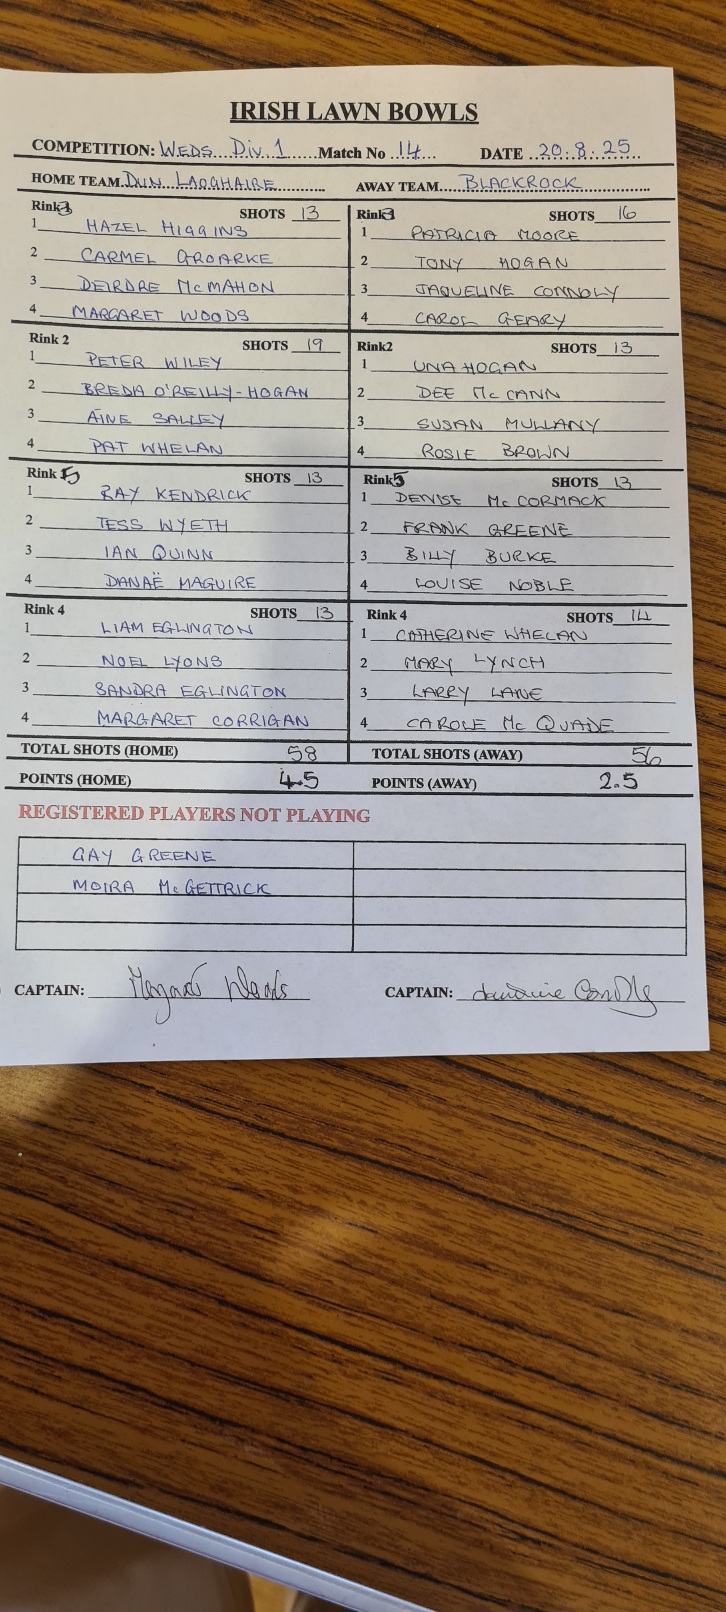 IRISH LAWN BOWLS
COMPETITION: WEDS Div. 1 Match No 14 DATE 20.8.25
HOME TEAM DUN LAOGHAIRE AWAY TEAM BLACKROCK
Rink 3 SHOTS 13
1 HAZEL HIGGINS
2 CARMEL GROARKE
3 DEIRDRE McMAHON
4 MARGARET WOODS
Rink 3 SHOTS 16
1 PATRICIA MOORE
2 TONY HOGAN
3 JAQUELINE CONNOLY
4 CAROL GEARY
Rink 2 SHOTS 19
1 PETER WILEY
2 BREDA O'REILLY-HOGAN
3 AINE SALLEY
4 PAT WHELAN
Rink2 SHOTS 13
1 UNA HOGAN
2 DEE McCANN
3 SUSAN MULLANY
4 ROSIE BROWN
Rink 5 SHOTS 13
1 RAY KENDRICK
2 TESS WYETH
3 IAN QUINN
4 DANAË MAGUIRE
Rink 5 SHOTS 13
1 DENISE McCORMACK
2 FRANK GREENE
3 BILLY BURKE
4 LOUISE NOBLE
Rink 4 SHOTS 13
1 LIAM EGLINGTON
2 NOEL LYONS
3 SANDRA EGLINGTON
4 MARGARET CORRIGAN
Rink 4 SHOTS 14
1 CATHERINE WHELAN
2 MARY LYNCH
3 LARRY LANE
4 CAROLE McQUADE
TOTAL SHOTS (HOME) 58 TOTAL SHOTS (AWAY) 56
POINTS (HOME) 4.5 POINTS (AWAY) 2.5
REGISTERED PLAYERS NOT PLAYING
GAY GREENE
MOIRA McGETTRICK
CAPTAIN: Margaret Woods CAPTAIN: